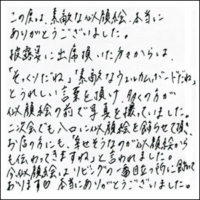 この度は、素敵な似顔絵、本当に
ありがとうございました。
披露宴に出席頂いた方々からは、
「そっくりだね」「素敵なウェルカムボードだね」
とうれしい言葉を頂け、多くの方が
似顔絵の前で写真を撮っていました。
二次会でも入口に似顔絵を飾らせて頂き、
お店の方にも、「幸せそうなのが似顔絵から
も伝わってきますね」と言われました。
今、似顔絵はリビングの一番目立つ所に飾って
おります 本当にありがとうございました。